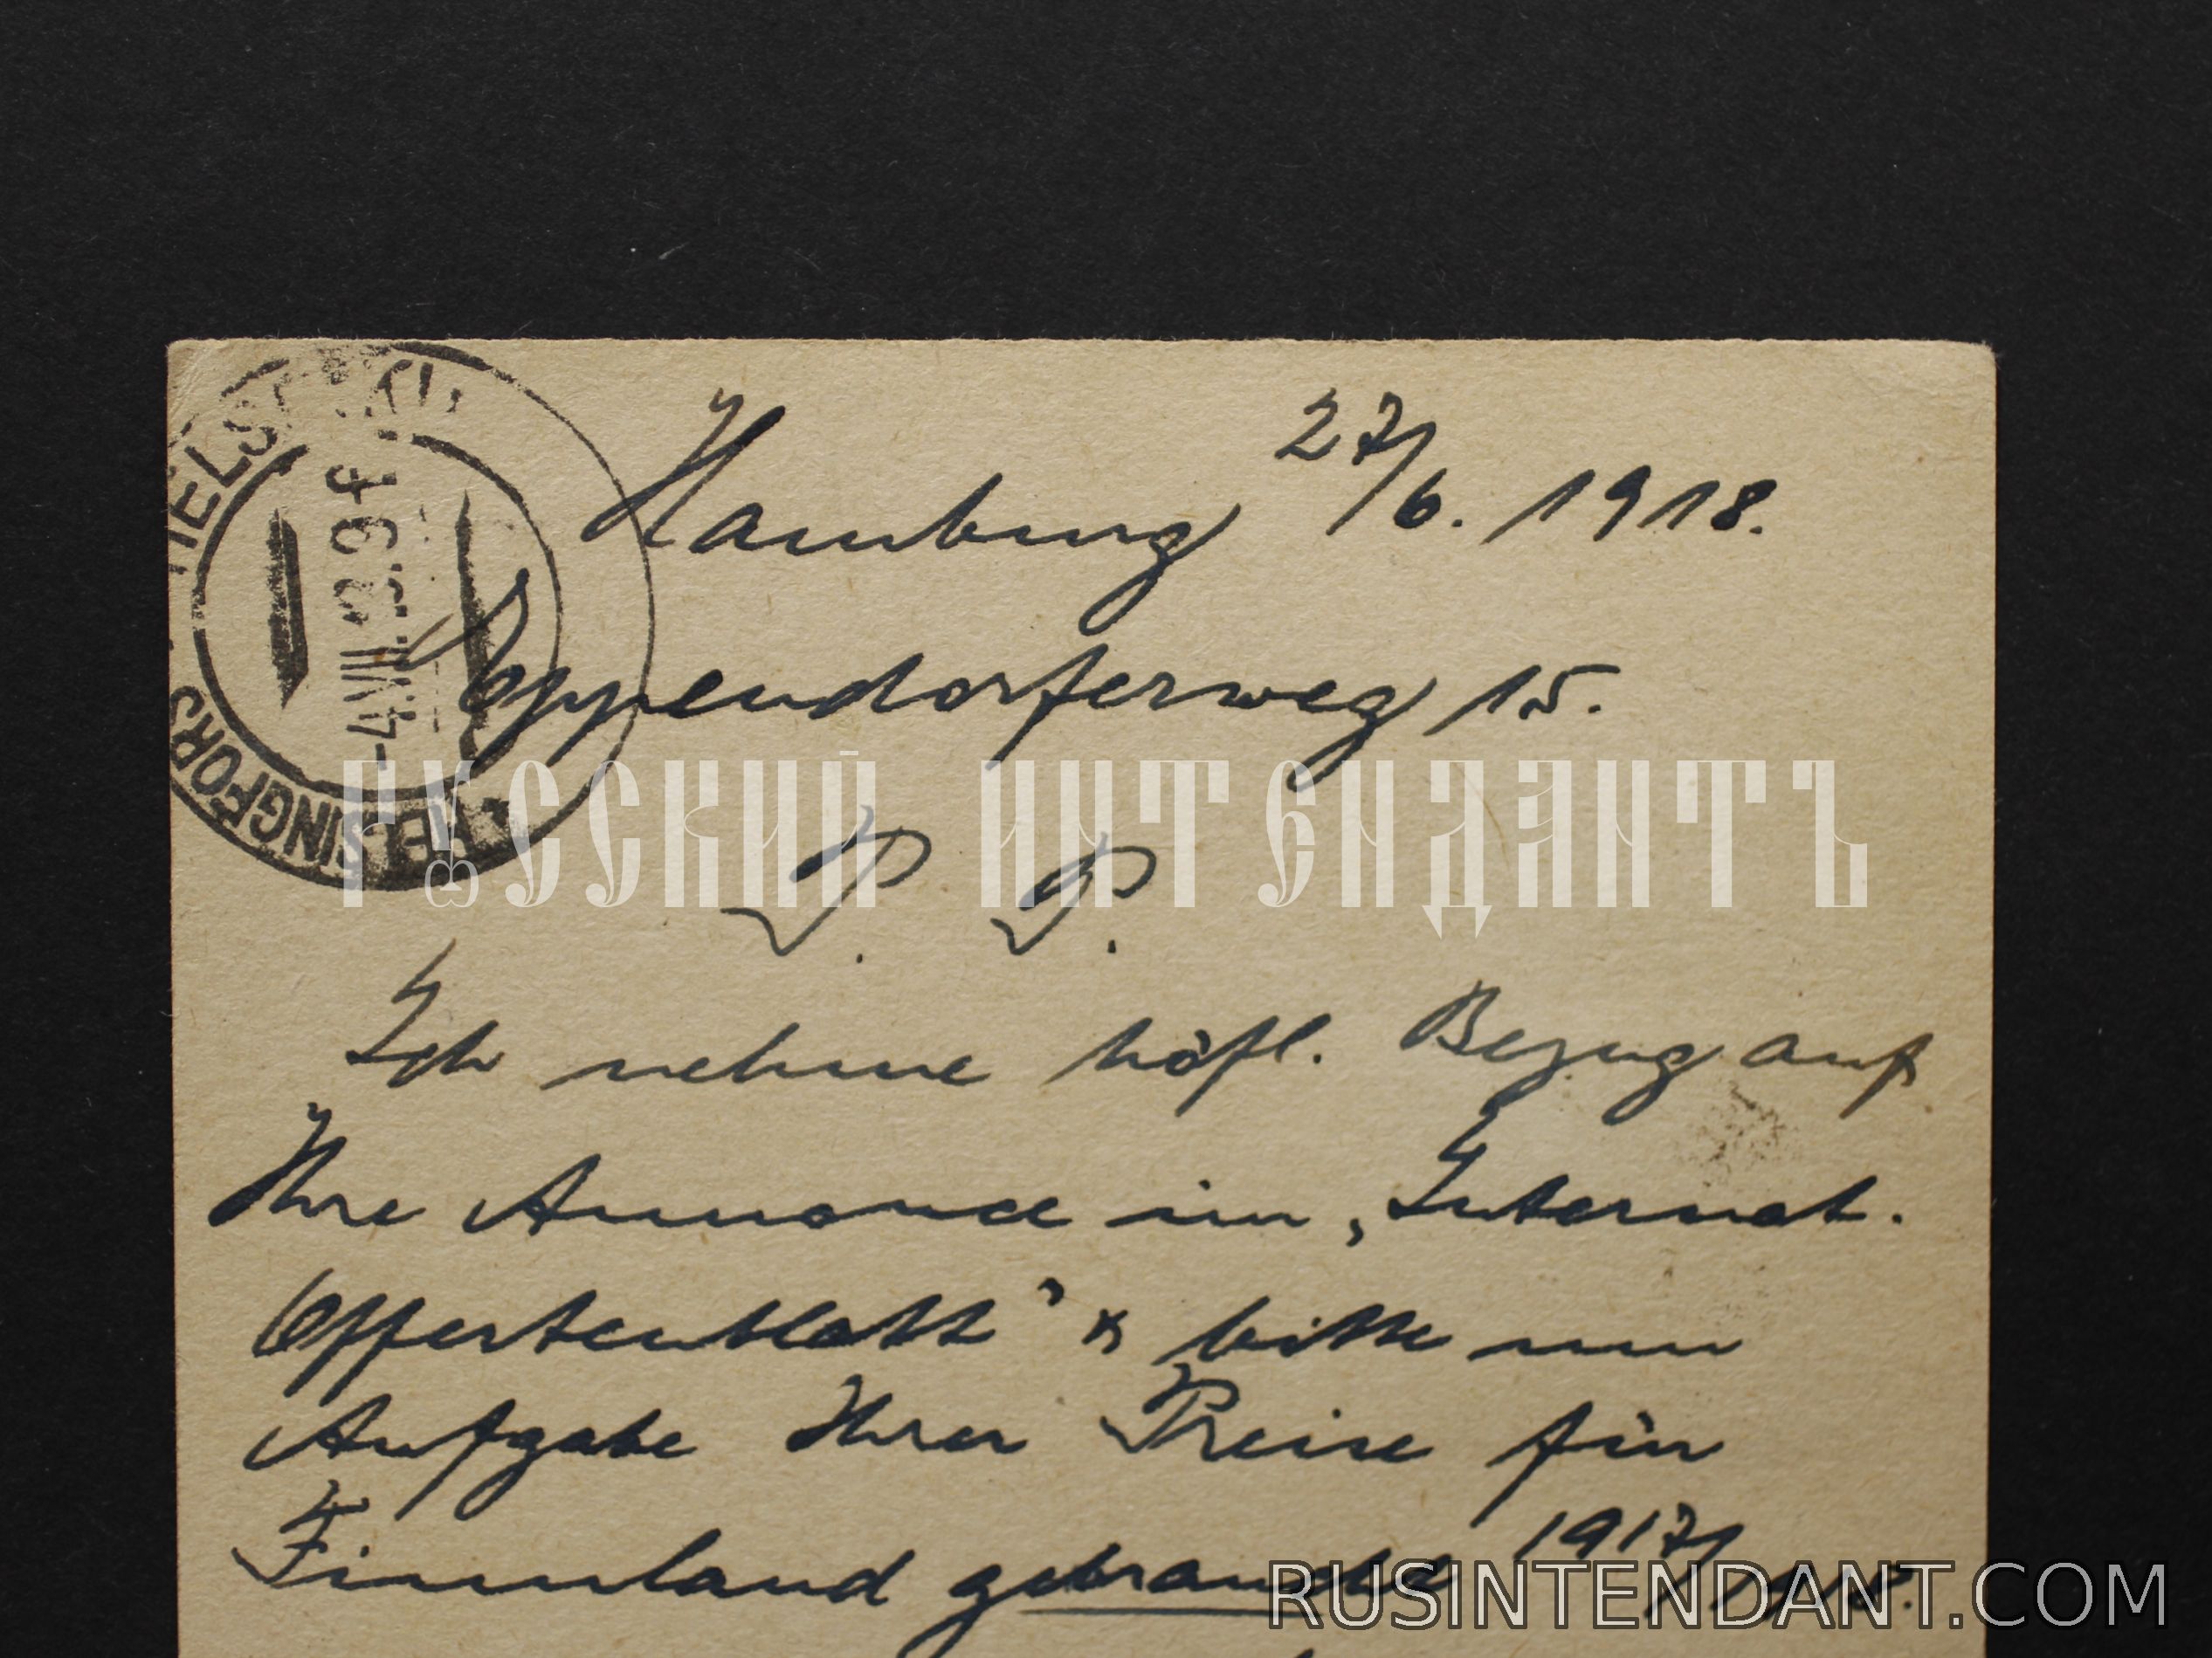 HELSINKI
-4.VII.18.9f
HELSINGFORS
Hamburg 27/6. 1918.
Eppendorferweg 15.
РУССКИЙ ИНТЕНДАНТЪ
P. P.
Ich nehme höfl. Bezug auf
Ihre Annonce im „Internat.
Offertenblatt" & bitte um
Aufgabe Ihrer Preise für
Finnland gebraucht 1917/18.
RUSINTENDANT.COM